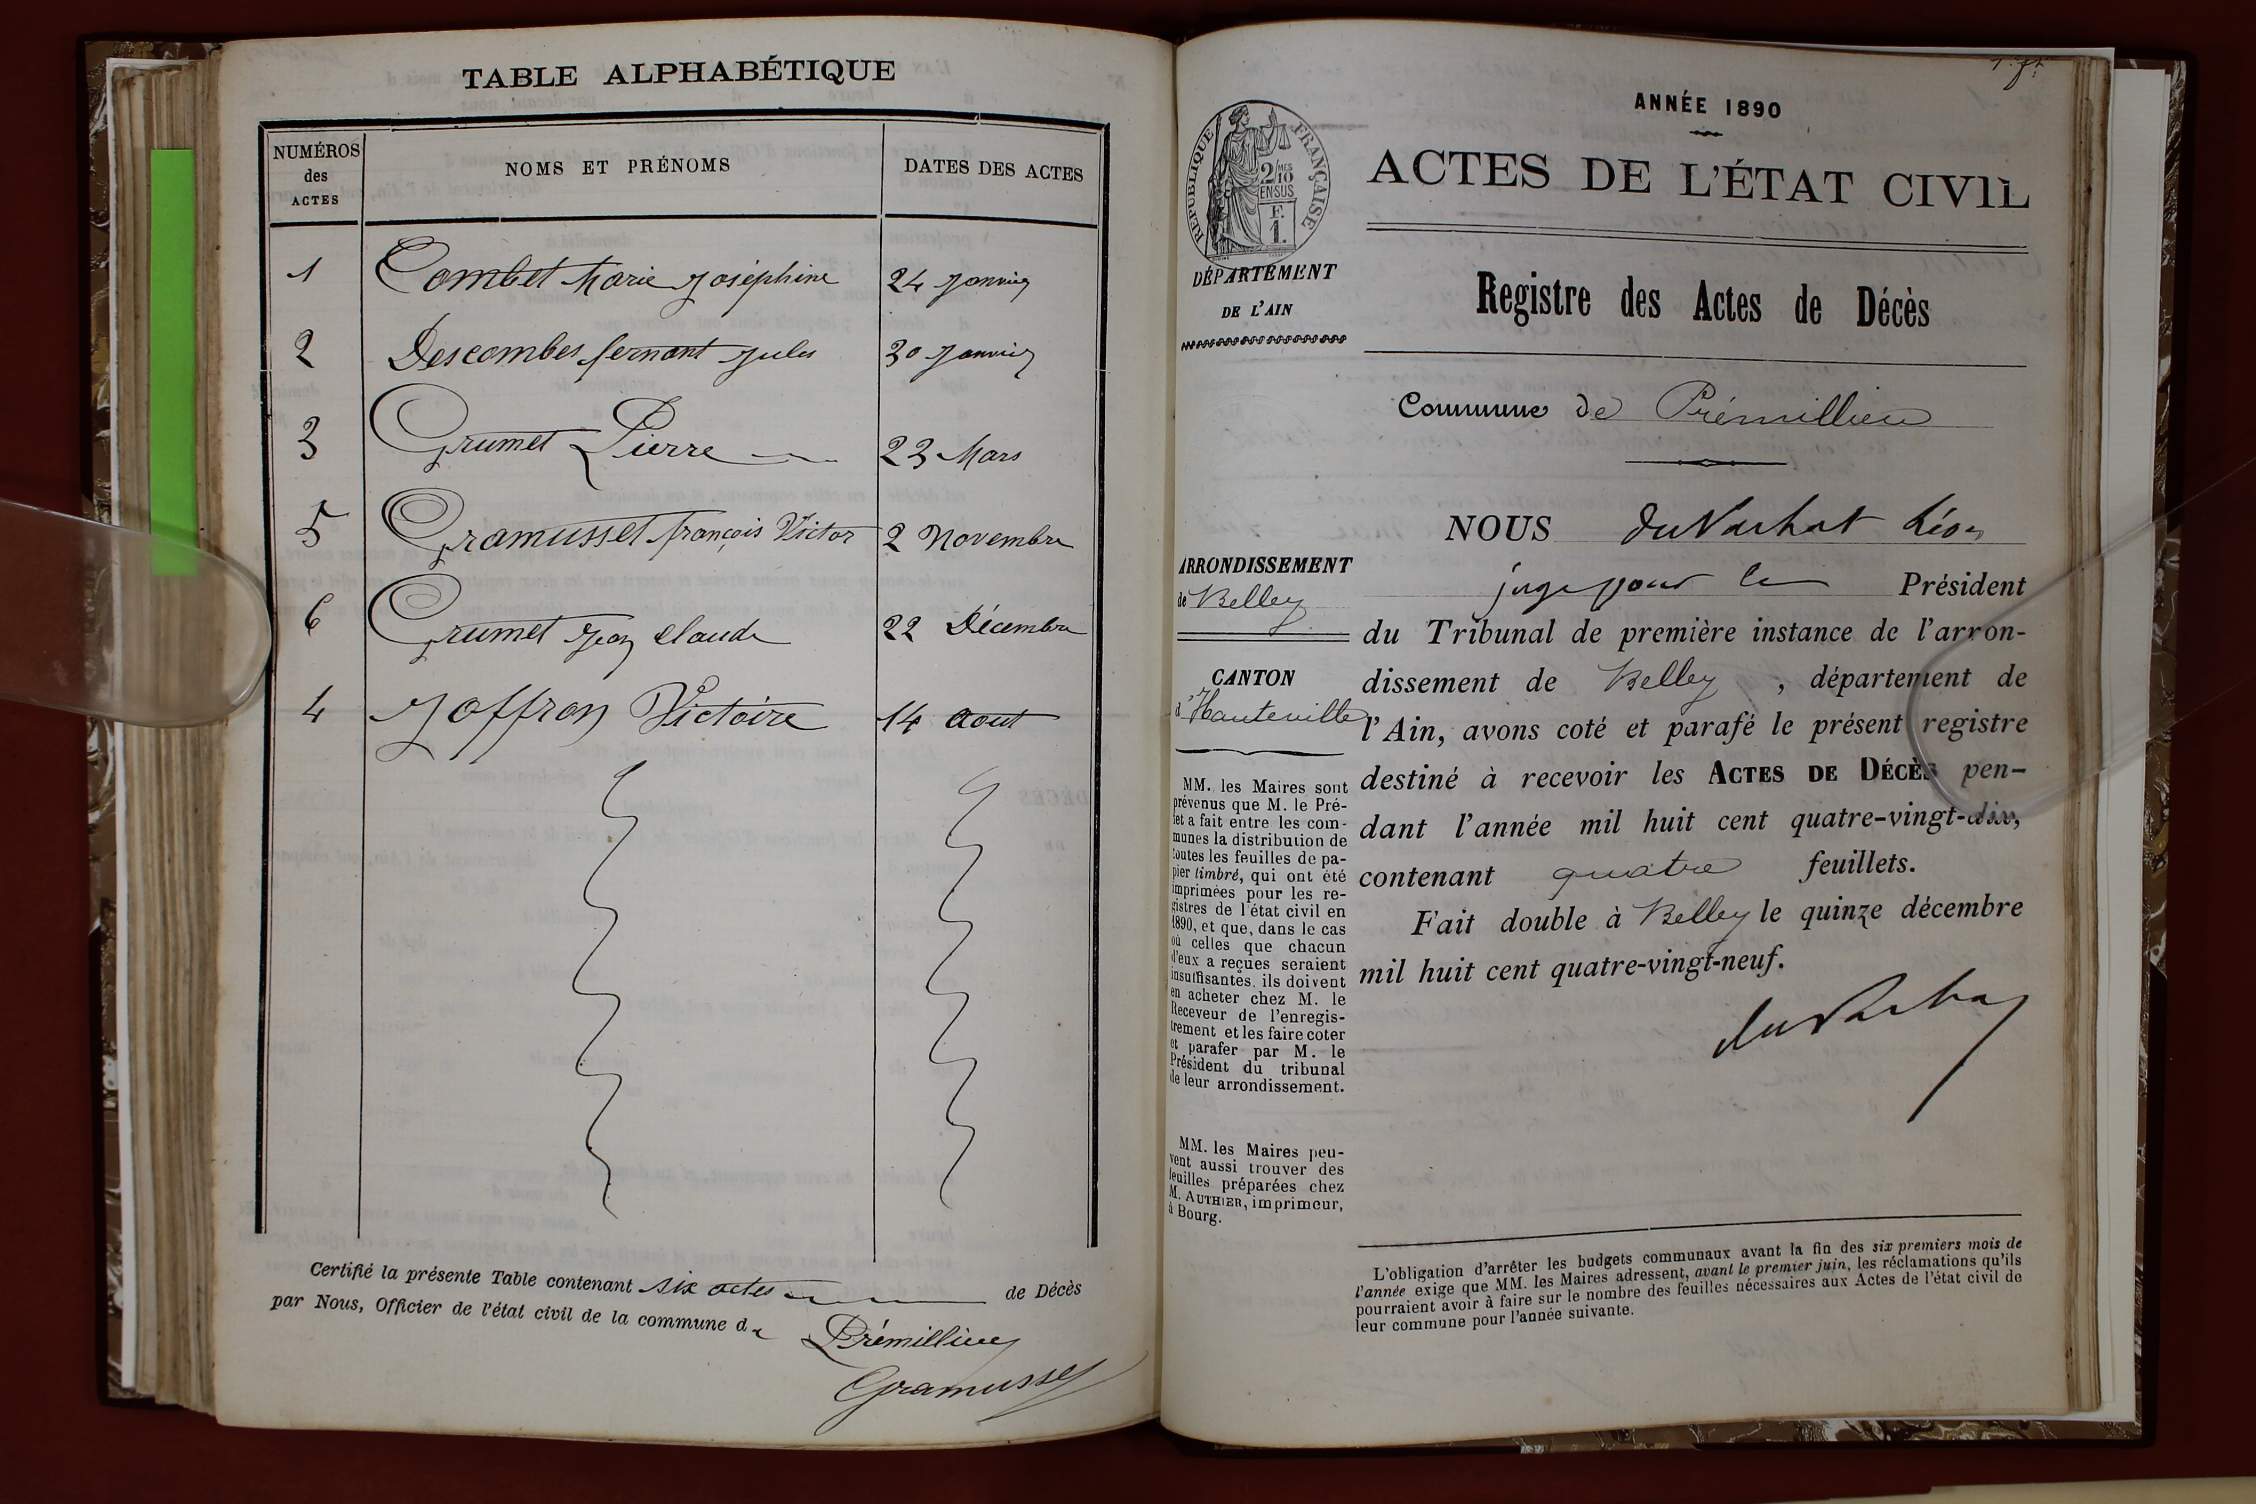 TABLE ALPHABÉTIQUE
NUMÉROS des ACTES
NOMS ET PRÉNOMS
DATES DES ACTES
1 Combet Marie Joséphine 24 Janvier
2 Descombes fernant Jules 30 Janvier
3 Grumet Pierre 23 Mars
5 Gramusset françois Victor 2 Novembre
6 Grumet Jean Claude 22 Décembre
4 Joffron Victoire 14 Aout
Certifié la présente Table contenant six actes de Décès
par Nous, Officier de l'état civil de la commune de Prémillieu
Gramusset
RÉPUBLIQUE FRANÇAISE
2/MES 10
EN SUS
F.
1.
DÉPARTEMENT
DE L'AIN
ARRONDISSEMENT
de Belley
CANTON
d'Hauteville
MM. les Maires sont
prévenus que M. le Pré-
fet a fait entre les com-
munes la distribution de
toutes les feuilles de pa-
pier timbré, qui ont été
imprimées pour les re-
gistres de l'état civil en
1890, et que, dans le cas
où celles que chacun
d'eux a reçues seraient
insuffisantes, ils doivent
en acheter chez M. le
Receveur de l'enregis-
trement et les faire coter
et parafer par M. le
Président du tribunal
de leur arrondissement.
MM. les Maires peu-
vent aussi trouver des
feuilles préparées chez
M. AUTHIER, imprimeur,
à Bourg.
ANNÉE 1890
ACTES DE L'ÉTAT CIVIL
Registre des Actes de Décès
Commune de Prémillieu
NOUS du Vachat Léon
juge pour le Président
du Tribunal de première instance de l'arron-
dissement de Belley, département de
l'Ain, avons coté et parafé le présent registre
destiné à recevoir les ACTES DE DÉCÈS pen-
dant l'année mil huit cent quatre-vingt-dix,
contenant quatre feuillets.
Fait double à Belley le quinze décembre
mil huit cent quatre-vingt-neuf.
L'obligation d'arrêter les budgets communaux avant la fin des six premiers mois de
l'année exige que MM. les Maires adressent, avant le premier juin, les réclamations qu'ils
pourraient avoir à faire sur le nombre des feuilles nécessaires aux Actes de l'état civil de
leur commune pour l'année suivante.